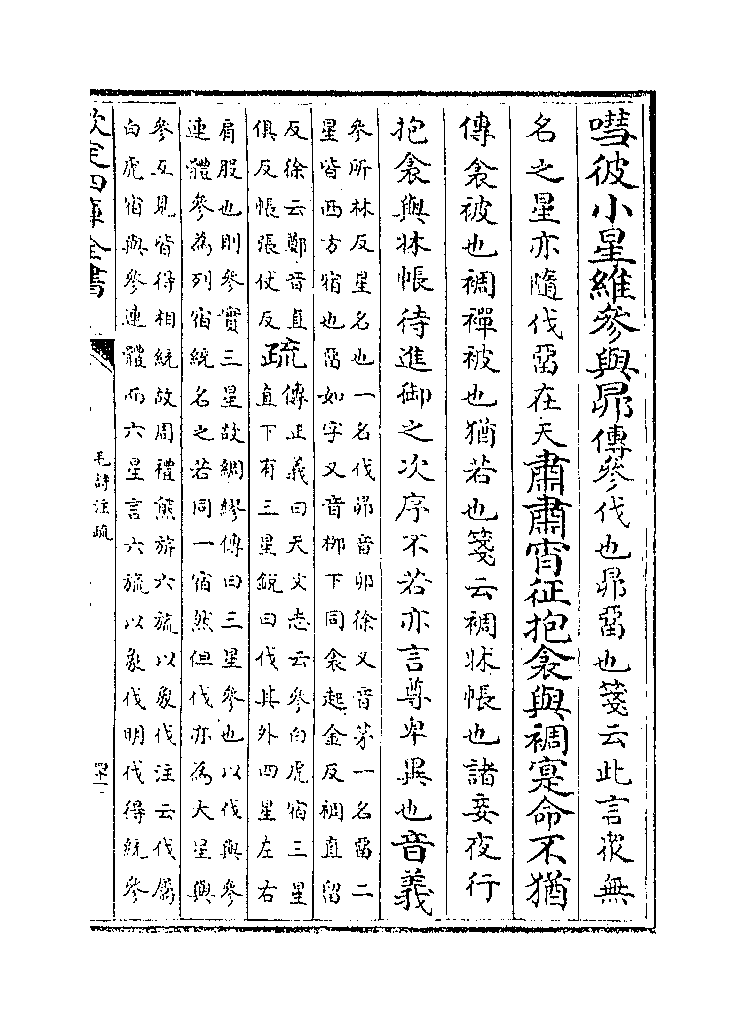 嘒彼小星維參與昴傳參伐也昴畱也箋云此言衆無
名之星亦隨伐畱在天肅肅宵征抱衾與裯寔命不猶
傳衾被也裯禪被也猶若也箋云裯牀帳也諸妾夜行
抱衾與牀帳待進御之次序不若亦言尊卑異也音義
參所林反星名也一名伐昴音卯徐又音茅一名畱二
星皆西方宿也畱如字又音栁下同衾起金反裯直留
反徐云鄭音直
俱反帳張仗反
疏
傳正義曰天文志云參白虎宿三星
直下有三星銳曰伐其外四星左右
肩股也則參實三星故綢繆傳曰三星參也以伐與參
連體參爲列宿統名之若同一宿然但伐亦爲大星與
參互見皆得相統故周禮熊旂六旒以象伐注云伐屬
白虎宿與參連體而六星言六旒以象伐明伐得統參
欽定四庫全書
毛詩注疏